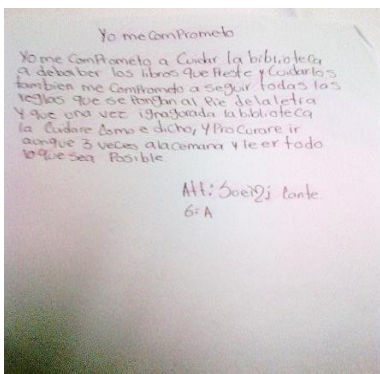 Yo me comPrometo
Yo me comPrometo a Cuidar la biblioteca
a debaber los libros que Preste y Cuidarlos
tambien me ComPrometo a seguir todas las
reglas que se Pongan al Pie de la letra
Y que una vez ignagorada la biblioteca
la Cuidare Como e dicho, y ProCurare ir
aonque 3 veces a la cemana y leer todo
lo que sea Posible.
Att: Conte
6: A